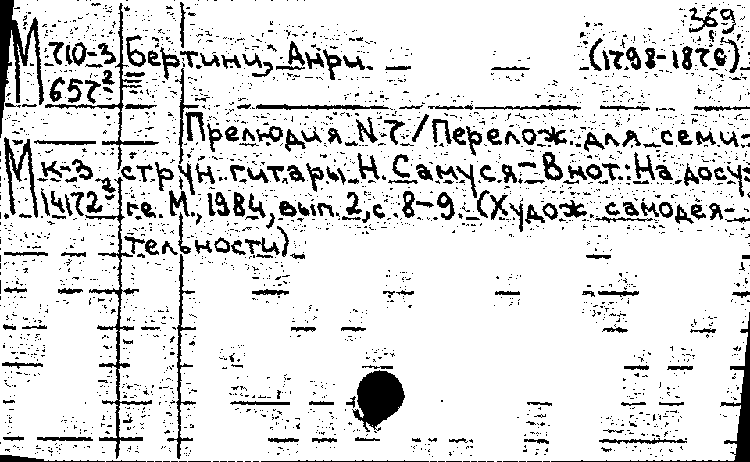 369
М 710-3 Бертини, Анри. (1798-1876)
657²
Прелюдия N 7/Перелож. для семи-
М К-3 струн. гитары Н. Самуся.-В нот.: На досу-
14172² ге. М., 1984, вып. 2, с. 8-9. (Худож. самодея-
тельности).